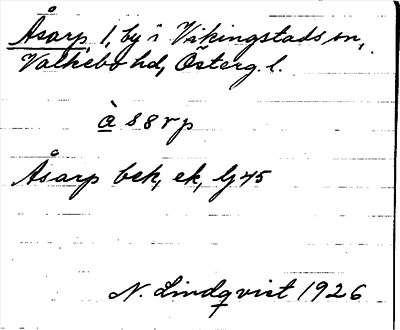 Åsarp, 1, by i Vikingstads sn,
Valkebo hd, Österg. l.
à s 8 r p
Åsarp bek, ek, lj 45
N. Lindqvist 1926